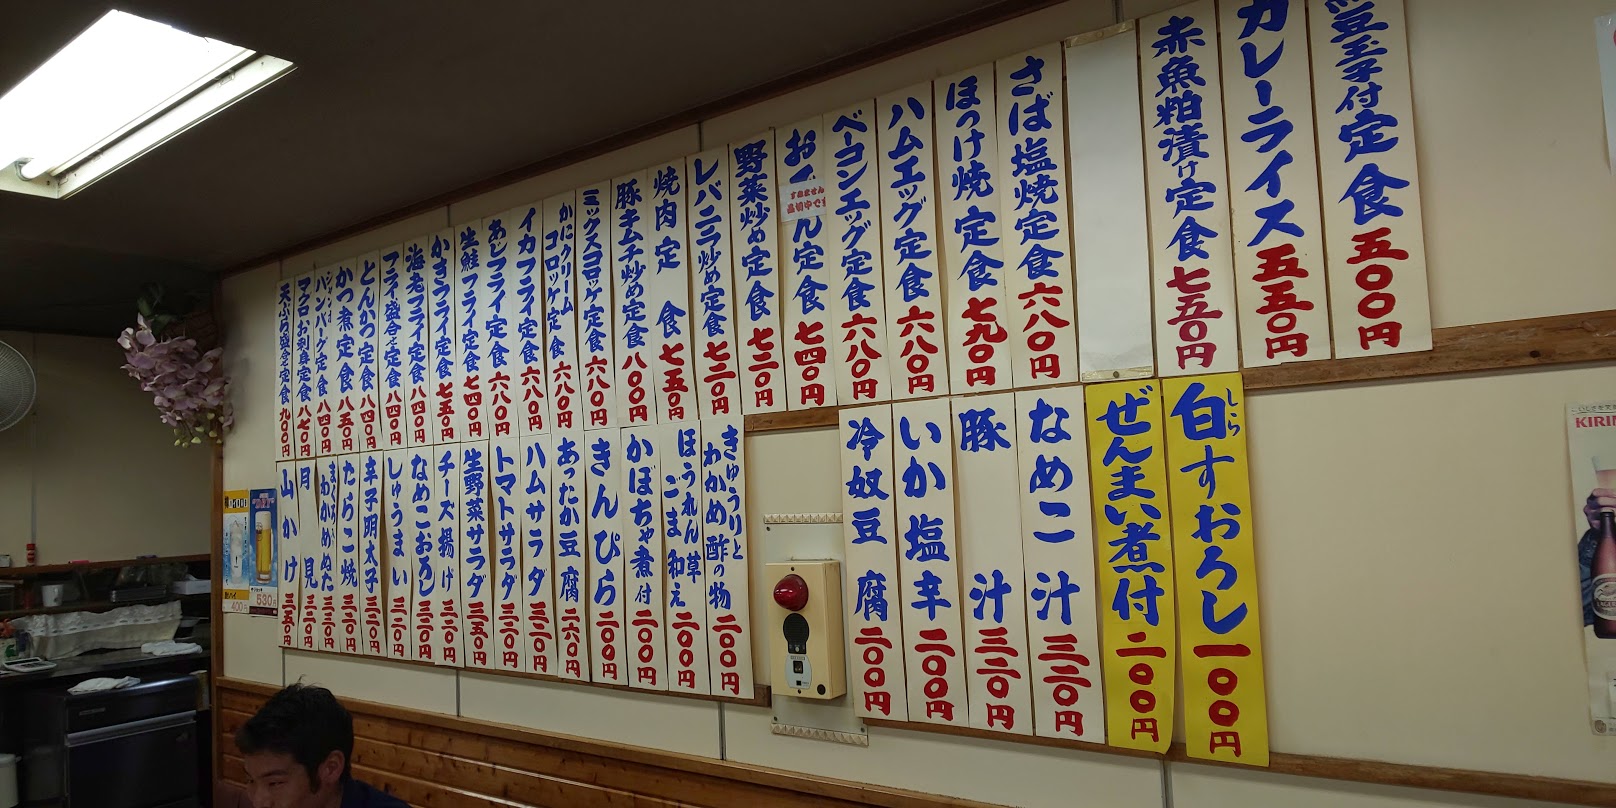 豆玉子付定食 五〇〇円
カレーライス 五五〇円
赤魚粕漬け定食 七五〇円
さば塩焼定食 六八〇円
ほっけ焼定食 七九〇円
ハムエッグ定食 六八〇円
ベーコンエッグ定食 六八〇円
お ん定食 七四〇円
すみません
品切中です
野菜炒め定食 七二〇円
レバニラ炒め定食 七二〇円
焼肉定食 七五〇円
豚キムチ炒め定食 八〇〇円
ミックスコロッケ定食 六八〇円
かにクリーム
コロッケ定食 六八〇円
イカフライ定食 六八〇円
あじフライ定食 六八〇円
生鮭フライ定食 七四〇円
かきフライ定食 七五〇円
海老フライ定食 八四〇円
フライ盛合せ定食 八四〇円
とんかつ定食 八四〇円
かつ煮定食 八五〇円
ジャンボ
ハンバーグ定食 八四〇円
マグロお刺身定食 八七〇円
天ぷら盛合せ定食 九〇〇円
白すおろし 一〇〇円
しら
ぜんまい煮付 二〇〇円
なめこ汁 三二〇円
豚汁 三二〇円
いか塩辛 二〇〇円
冷奴豆腐 二〇〇円
きゅうりと
わかめ酢の物 二〇〇円
ほうれん草
ごま和え 二〇〇円
かぼちゃ煮付 二〇〇円
きんぴら 二〇〇円
あったか豆腐 二六〇円
ハムサラダ 三二〇円
トマトサラダ 三二〇円
生野菜サラダ 三五〇円
チーズ揚げ 三二〇円
なめこおろし 三二〇円
しゅうまい 三二〇円
辛子明太子 三二〇円
たらこ焼 三二〇円
まぐろ
わかめぬた 三三〇円
月見 三二〇円
山かけ 三五〇円
400円
530円
KIRIN